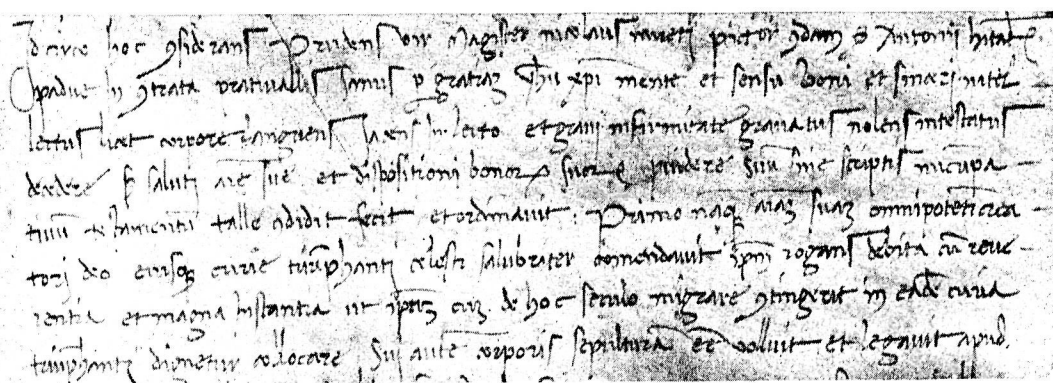 Id circo hoc ꝯsiderans Prudens vir Magister nicolaus pictor ꝗdam S. Antonii hitat.
padue in ꝯtrata prativallis sanus ꝑ gratiaꝫ Jhu xpi mente et sensu boni et sinceri intel
lectus licet corpore languens Jacens in lecto et gravi infirmitate gravatus nolens intestatus
decedere sꝫ saluti aie sue et dispositioni bonoꝝ suoꝝ ꝓvidere suu sine scriptis nuncupa
tivu testamentu talle ꝯdidit fecit et ordinavit. Primo naqꝫ aiaꝫ suaꝫ omnipoteti crea
tori deo eiusqꝫ curie triuphanti celesti salubriter comendavit ipm rogans debita cu reve
rentia et magna instantia ut ipaꝫ cuꝫ de hoc seculo migrare ꝯtingerit in eade curia
triuphanti dignetur collocare Sui aute corporis sepultura ee volluit et legavit apud.